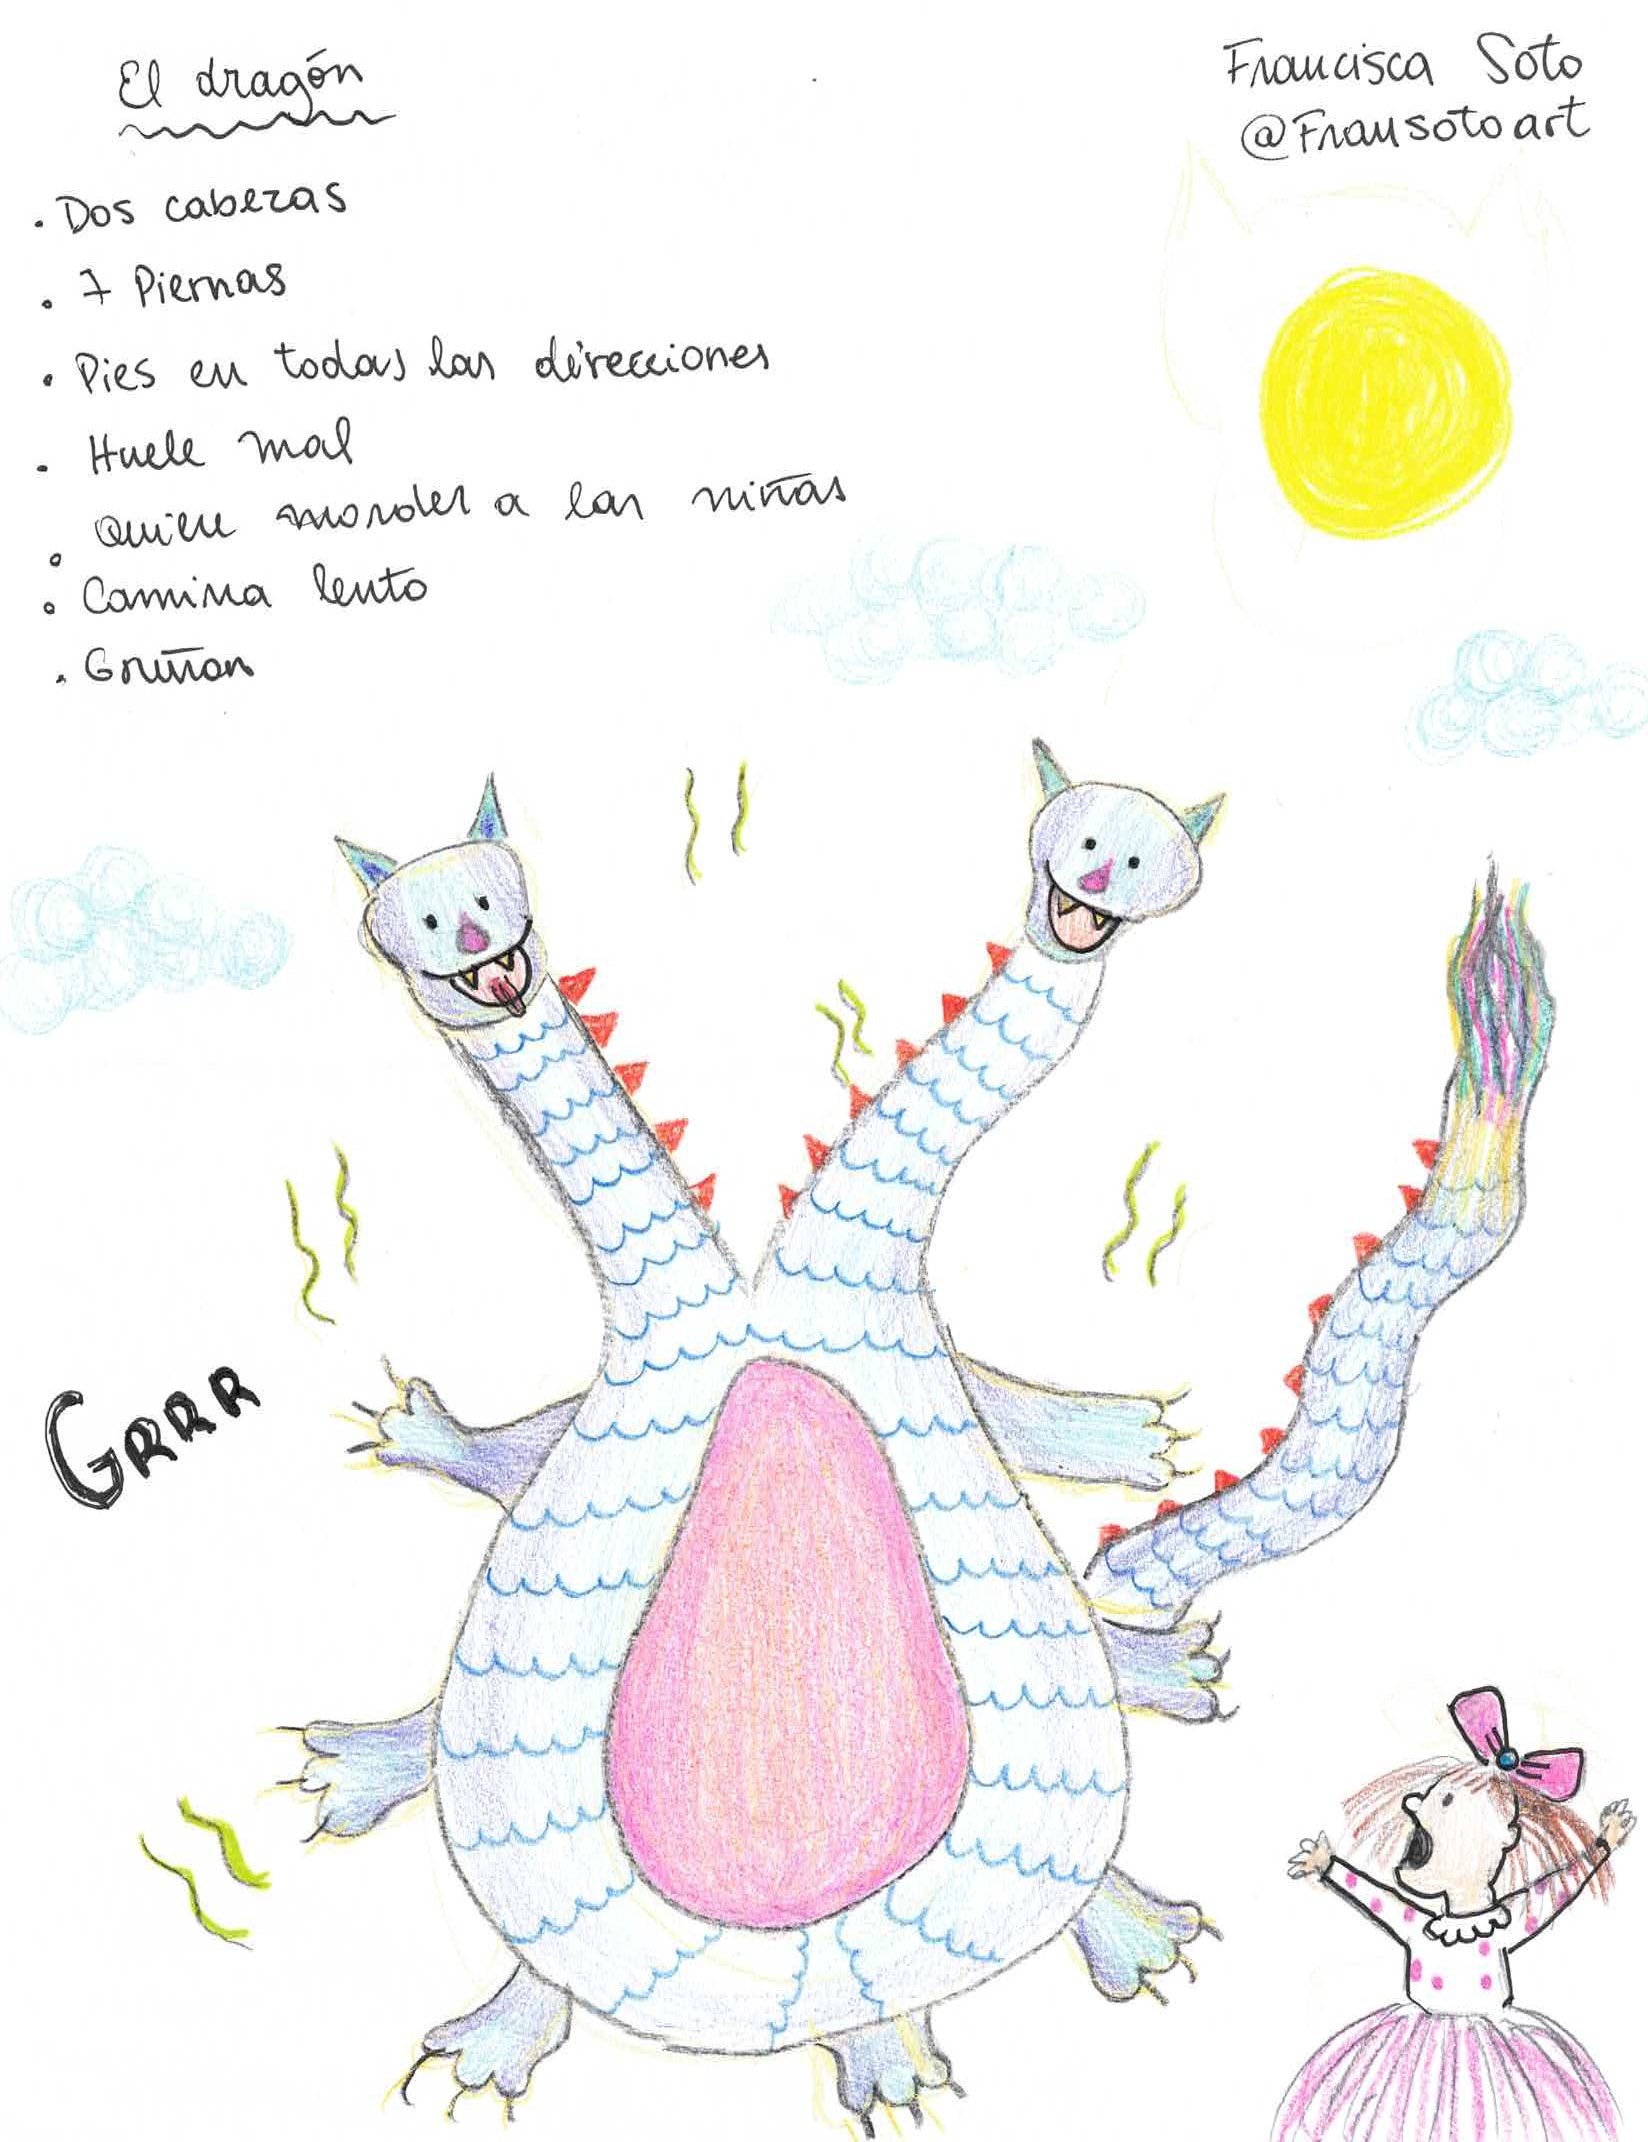 El dragón
Francisca Soto
@Fransotoart
• Dos cabezas
• 7 Piernas
• Pies en todas las direcciones
• Huele mal
• Quiere morder a las niñas
• Camina lento
• Gruñon
GRRR